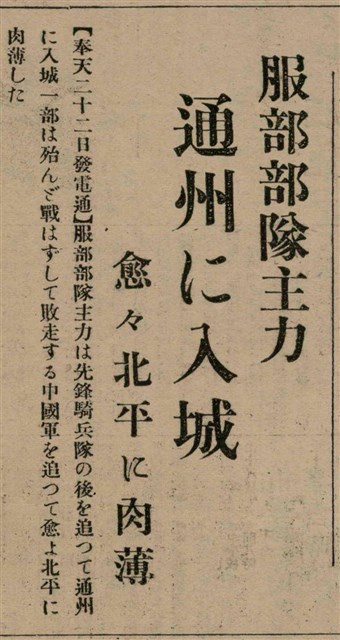 服部部隊主力
通州に入城
愈々北平に肉薄
【奉天二十二日發電通】服部部隊主力は先鋒騎兵隊の後を追つて通州
に入城一部は殆んど戰はずして敗走する中國軍を追つて愈よ北平に
肉薄した